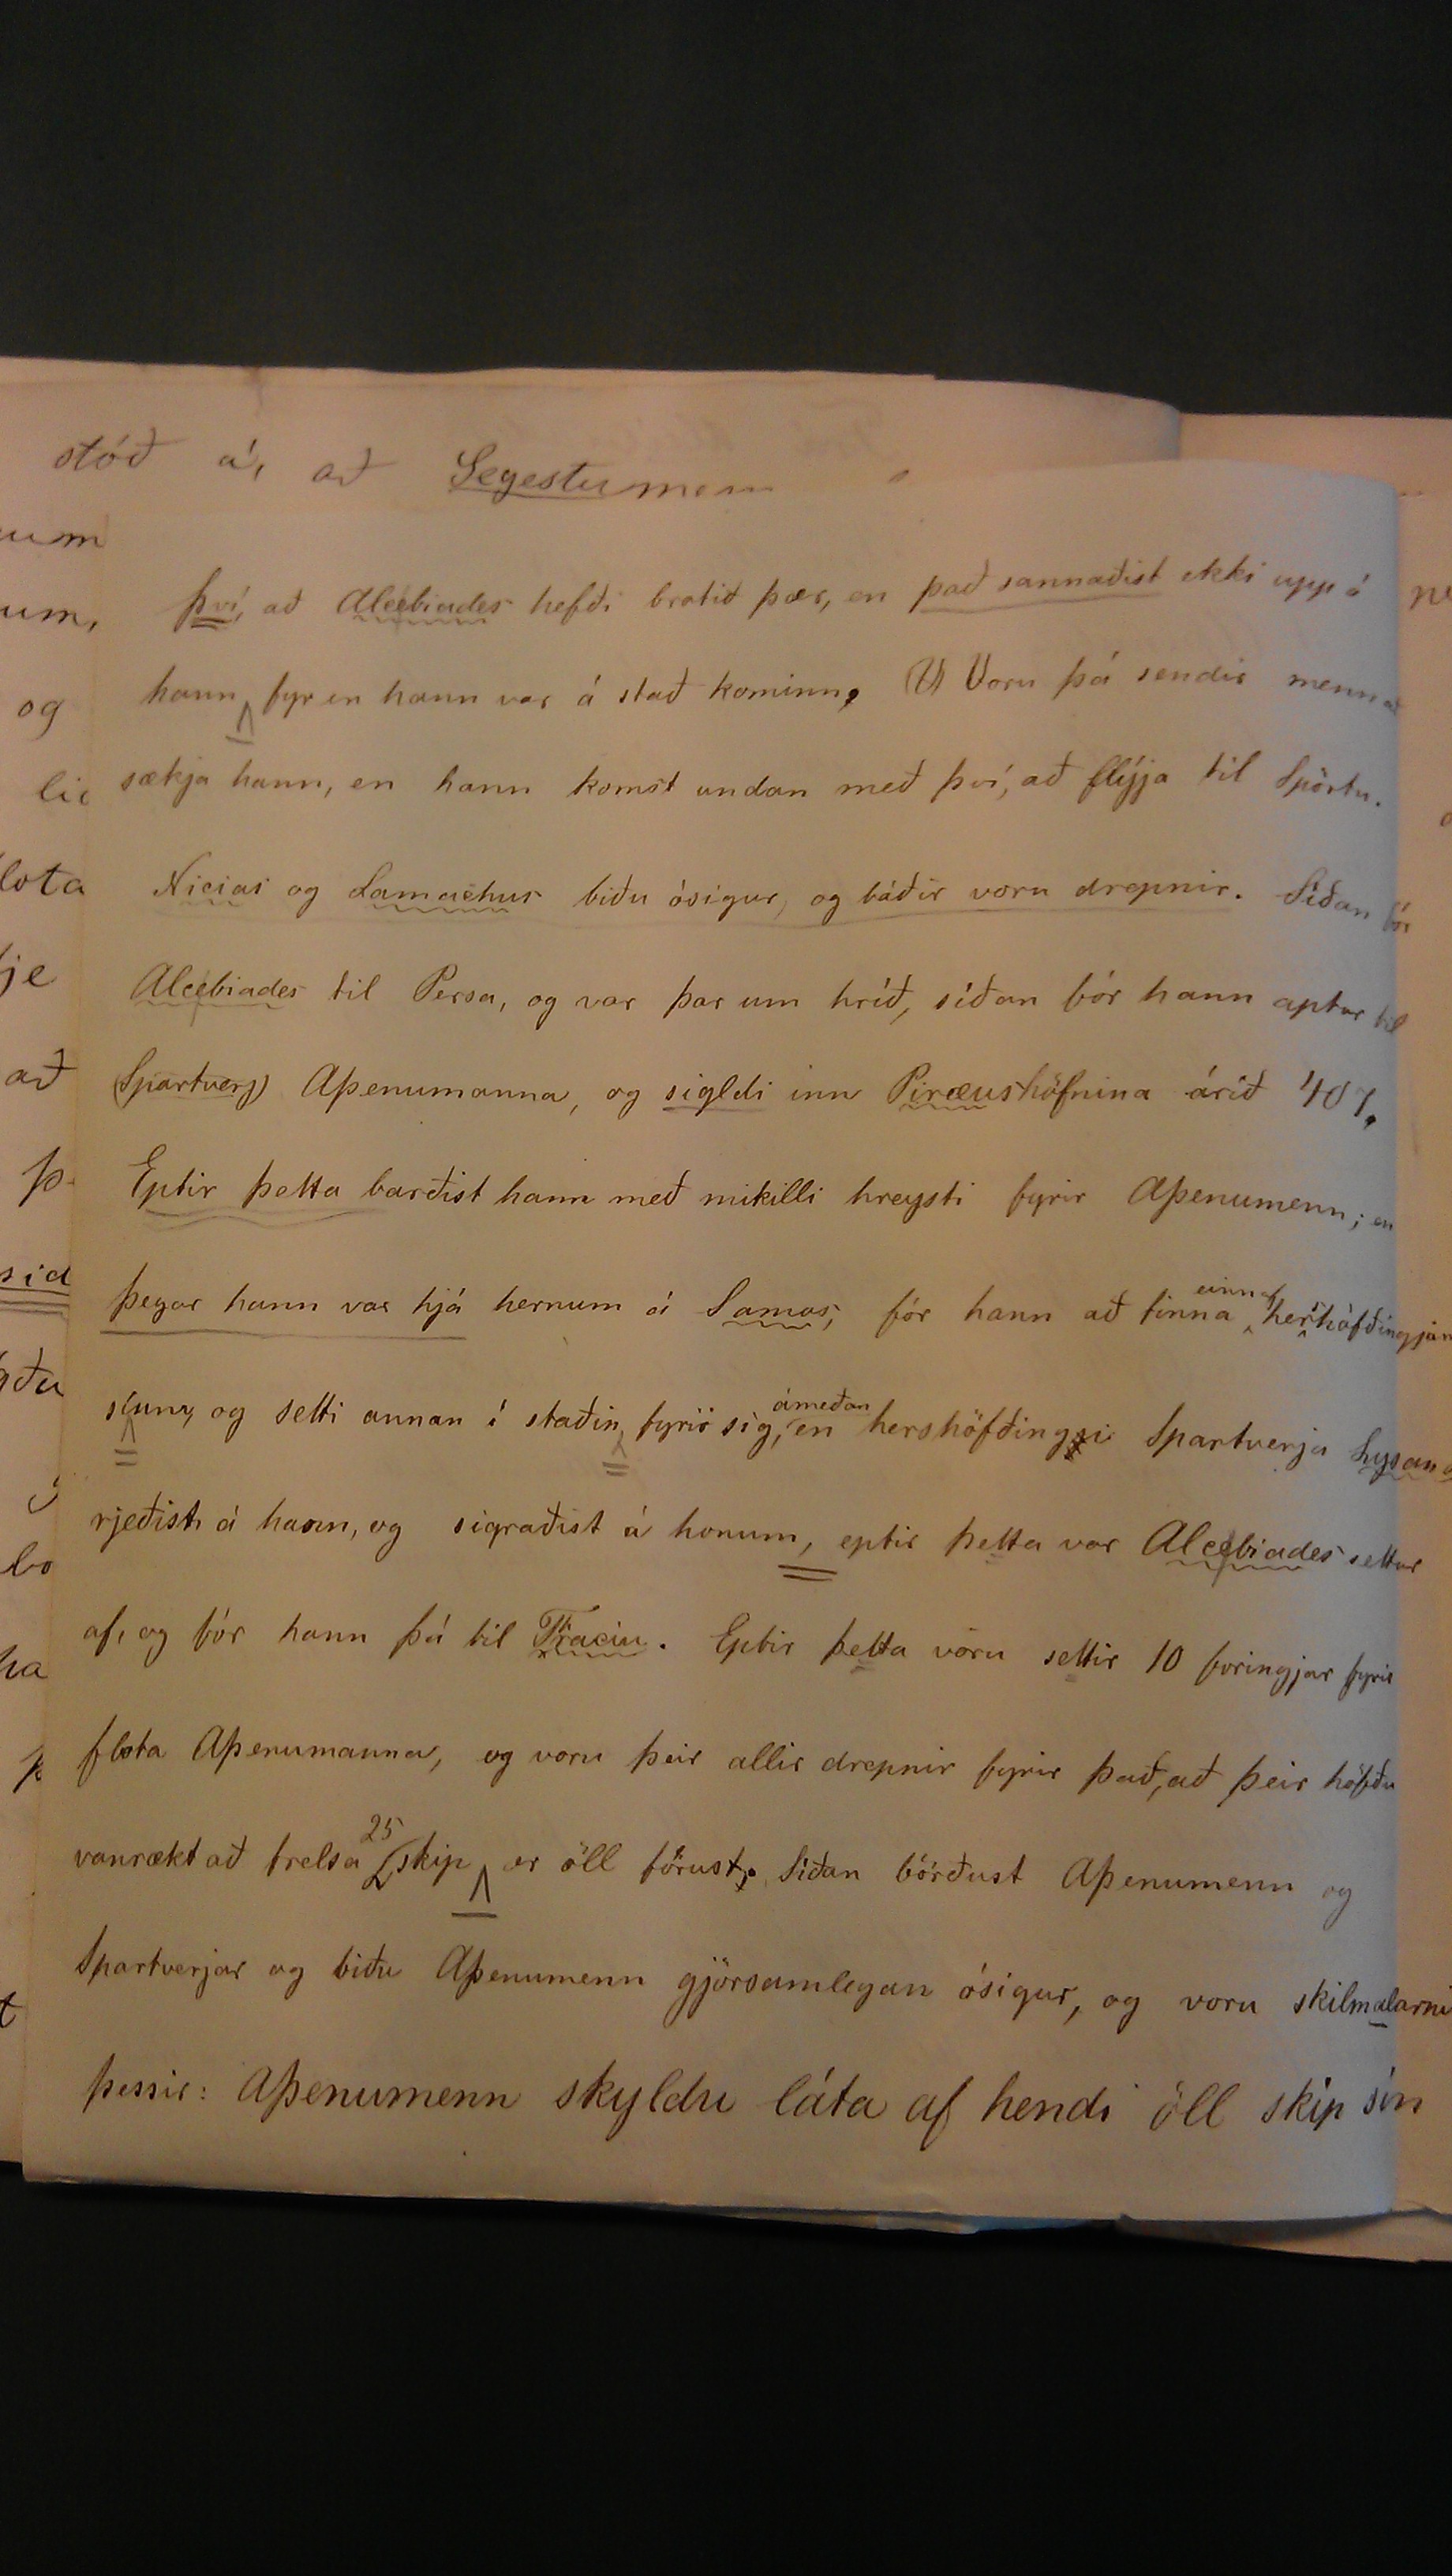 stóð á, að Segestumenn
því, að Alcebiades hefði brotið þær, en það sannaðist ekki upp á
hann, fyr en hann var á stað kominn. Voru þá sendir menn að
sækja hann, en hann komst undan með því, að flýja til Spörtu.
Nicias og Lamachus biðu ósigur, og báðir voru drepnir. Síðan fór
Alcebiades til Persa, og var þar um hríð, síðan fór hann aptur til
(Spartverj) Aþenumanna, og sigldi inn Piræushöfnina árið 407.
Eptir þetta barðist hann með mikilli hreysti fyrir Aþenumenn; en
þegar hann var hjá hernum á Samos, fór hann að finna einn af hershöfðingjum
sínum, og setti annan í staðin fyrir sig, ámeðan en hershöfðingi Spartverja Lysand
rjeðist á hann, og sigraðist á honum, eptir þetta var Alcebiades settur
af, og fór hann þá til Traciu. Eptir þetta voru settir 10 foringjar fyrir
flota Aþenumanna, og voru þeir allir drepnir fyrir það, að þeir höfðu
vanrækt að frelsa 25 skip er öll fórust. Síðan börðust Aþenumenn og
Spartverjar og biðu Aþenumenn gjörsamlegan ósigur, og voru skilmalarnir
þessir: Aþenumenn skyldu láta af hendi öll skip sín